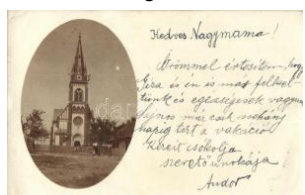 Kedves Nagymama!
Örömmel értesítem, hogy
Géza és én is már felkel-
tünk és egészségesek vagyunk
Sajnos már csak néhány
napig tart a vakáció
Kezeit csókolja
szerető unokája
Andor